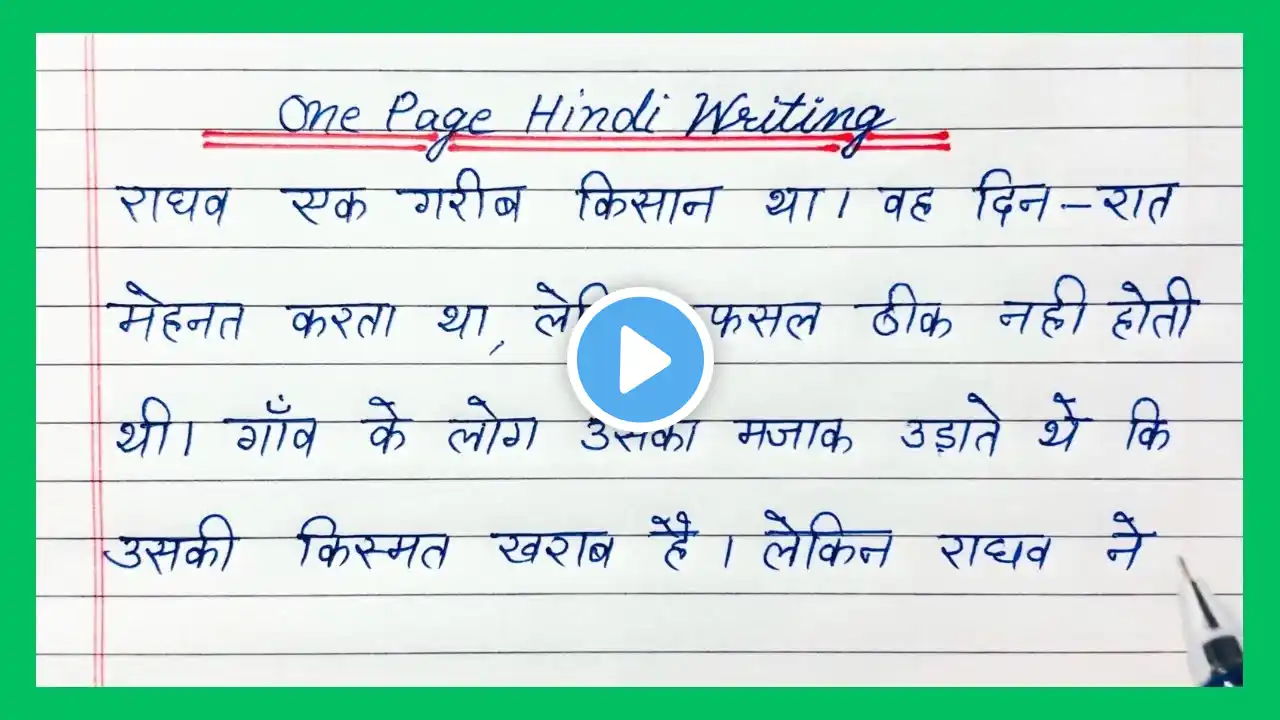 One Page Hindi Writing
राघव एक गरीब किसान था। वह दिन-रात
मेहनत करता था, फसल ठीक नही होती
थी। गाँव के लोग उसका मजाक उड़ाते थे कि
उसकी किस्मत खराब है। लेकिन राघव ने